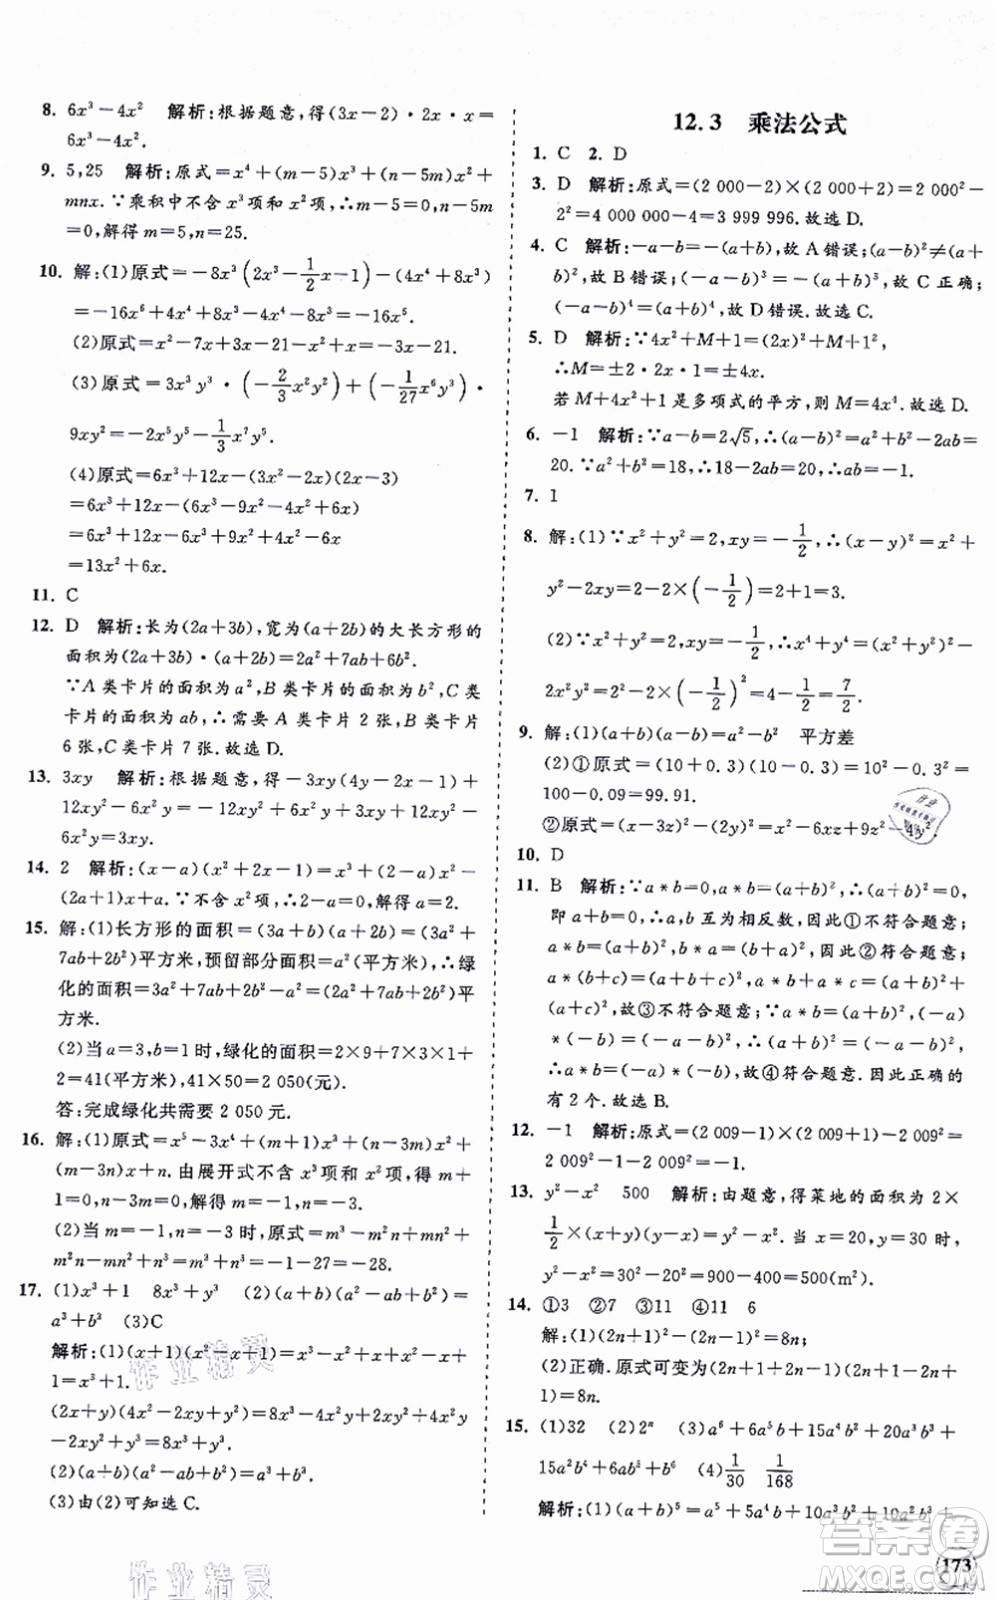 8. 6x³－4x²　解析:根据题意,得(3x－2)·2x·x＝
6x³－4x².
9. 5,25　解析:原式＝x⁴＋(m－5)x³＋(n－5m)x²＋
mnx.∵乘积中不含x³项和x²项,∴m－5＝0,n－5m
＝0,解得m＝5,n＝25.
10. 解:(1)原式＝－8x³(2x³－1/2x－1)－(4x⁴＋8x³)
＝－16x⁶＋4x⁴＋8x³－4x⁴－8x³＝－16x⁶.
(2)原式＝x²－7x＋3x－21＝x²－4x－21.
(3)原式＝3x³y³·(－2/3x²y²)＋(－1/27x⁶y³)·
9xy²＝－2x⁵y⁵－1/3x⁷y⁵.
(4)原式＝6x³＋12x－(3x－6)(x－2x²)
＝6x³＋12x－(3x²－6x³－6x＋12x²)
＝6x³＋12x－3x²＋6x³＋6x－12x²
11. C
12. D　解析:长为(2a＋3b),宽为(a＋2b)的大长方形的
面积为(2a＋3b)·(a＋2b)＝2a²＋7ab＋6b².
∵A类卡片的面积为a²,B类卡片的面积为b²,C类
卡片的面积为ab,∴需要A类卡片2张,B类卡片
6张,C类卡片7张.故选D.
13. 3xy　解析:根据题意,得－3xy(4y－2x－1)＋
12xy²－6x²y＝－12xy²＋6x²y＋3xy＋12xy²－6x²y＝
3xy.
14. 2　解析:(x－a)(x²＋2x－1)＝x³＋(2－a)x²－
(1＋2a)x＋a.∵不含x²项,∴2－a＝0,解得a＝2.
15. 解:(1)长方形的面积＝(3a＋b)(a＋2b)＝(3a²＋
7ab＋2b²)平方米,预留部分面积＝a²(平方米),∴绿
化的面积＝3a²＋7ab＋2b²－a²＝(2a²＋7ab＋2b²)平
方米.
(2)当a＝3,b＝1时,绿化的面积＝2×9＋7×3×1＋
2＝41(平方米),41×50＝2 050(元).
答:完成绿化共需要2 050元.
16. 解:(1)原式＝x⁵－3x⁴＋(m＋1)x³＋(n－3m)x²＋
(m－3n)x＋n.由展开式不含x³项和x²项,得m＋
1＝0,n－3m＝0,解得m＝－1,n＝－3.
(2)当m＝－1,n＝－3时,原式＝m³－m²n＋mn²＋
m²n－mn²＋n³＝m³＋n³＝－1－27＝－28.
17. (1)x³＋1　8x³＋y³　(2)(a＋b)(a²－ab＋b²)＝
a³＋b³　(3)C
解析:(1)(x＋1)(x²－x＋1)＝x³－x²＋x＋x²－x＋1＝
x³＋1.
(2x＋y)(4x²－2xy＋y²)＝8x³－4x²y＋2xy²＋4x²y－
2xy²＋y³＝8x³＋y³.
(2)(a＋b)(a²－ab＋b²)＝a³＋b³.
(3)由(2)可知选C.
12.3　乘法公式
1. C　2. D
3. D　解析:原式＝(2 000－2)×(2 000＋2)＝2 000²－
2²＝4 000 000－4＝3 999 996.故选D.
4. C　解析:－a－b＝－(a＋b),故A错误;(a－b)²≠(a＋
b)²,故B错误;(－a－b)³＝－(a＋b)³,故C正确;
(－a－b)⁴＝(a＋b)⁴,故D错误.故选C.
5. D　解析:∵4x²＋M＋1＝(2x)²＋M＋1²,
∴M＝±2·2x＝±4x.
若M＋4x²＋1是多项式的平方,则M＝4x⁴.故选D.
6. －1　解析:∵a－b＝2√5,∴(a－b)²＝a²＋b²－2ab＝
20.∵a²＋b²＝18,∴18－2ab＝20,∴ab＝－1.
7. 1
8. 解:(1)∵x²＋y²＝2,xy＝－1/2,∴(x－y)²＝x²＋
y²－2xy＝2－2×(－1/2)＝2＋1＝3.
(2)∵x²＋y²＝2,xy＝－1/2,∴x⁴＋y⁴＝(x²＋y²)²－
2x²y²＝2²－2×(－1/2)²＝4－1/2＝7/2.
9. 解:(1)(a＋b)(a－b)＝a²－b²　平方差
(2)①原式＝(10＋0.3)(10－0.3)＝10²－0.3²＝
100－0.09＝99.91.
②原式＝(x－3z)²－(2y)²＝x²－6xz＋9z²－4y².
10. D
11. B　解析:∵a*b＝0,a*b＝(a＋b)²,∴(a＋b)²＝0,
即a＋b＝0,∴a,b互为相反数,因此①不符合题意;
a*b＝(a＋b)²,b*a＝(b＋a)²,因此②符合题意;
a*(b＋c)＝(a＋b＋c)²,a*b＋a*c＝(a＋b)²＋
(a＋c)²,故③不符合题意;∵a*b＝(a＋b)²,(－a)
*(－b)＝(－a－b)²,∵(a＋b)²＝(－a－b)²,∴a*
b＝(－a)*(－b),故④符合题意.因此正确的
有2个.故选B.
12. －1　解析:原式＝(2 009－1)×(2 009＋1)－2 009²＝
2 009²－1²－2 009²＝－1.
13. y²－x²　500　解析:由题意,得菜地的面积为2×
1/2×(x＋y)(y－x)＝y²－x².当x＝20,y＝30时,
y²－x²＝30²－20²＝900－400＝500(m²).
14. ①3　②7　③11　④11　6
解:(1)(2n＋1)²－(2n－1)²＝8n;
(2)正确.原式可变为(2n＋1＋2n－1)(2n＋1－2n＋
1)＝8n.
15. (1)32　(2)2ⁿ　(3)a⁶＋6a⁵b＋15a⁴b²＋20a³b³＋
15a²b⁴＋6ab⁵＋b⁶　(4)1/30　1/168
解析:(1)(a＋b)⁵＝a⁵＋5a⁴b＋10a³b²＋10a²b³＋
(173)
作业精灵
作业精灵
答案圈
MXQE.COM